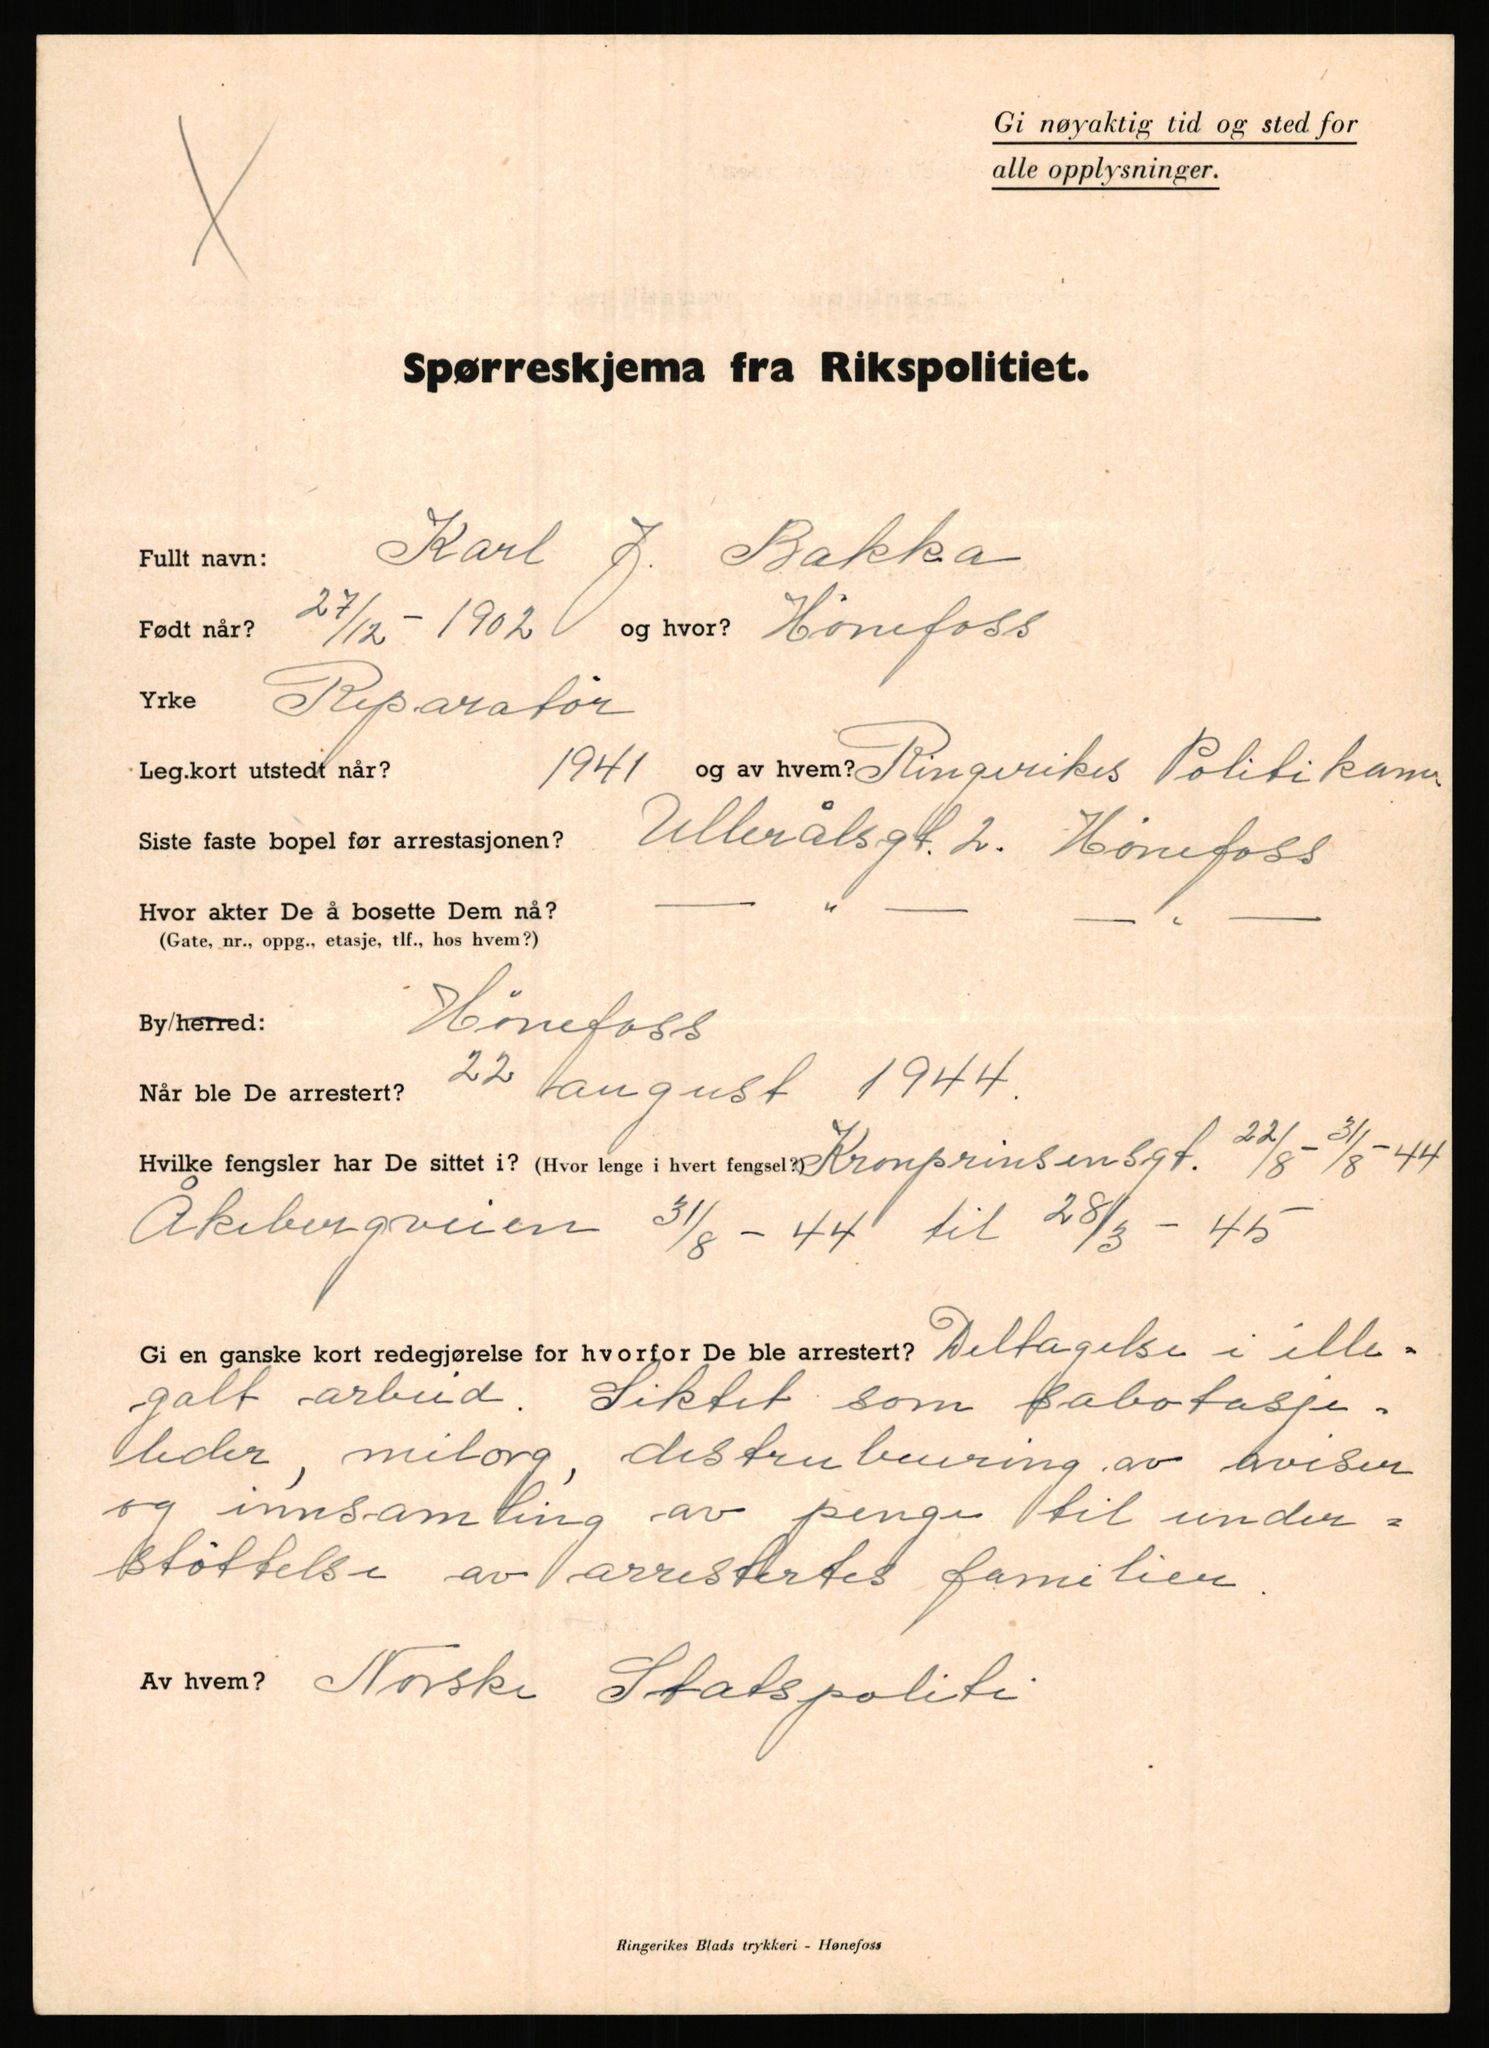 Gi nøyaktig tid og sted for
alle opplysninger.
Spørreskjema fra Rikspolitiet.
Fullt navn: Karl J. Bakka
Født når? 27/12 - 1902 og hvor? Hönefoss
Yrke Reparatör
Leg.kort utstedt når? 1941 og av hvem? Ringerikes Politikam.
Siste faste bopel før arrestasjonen? Ullerålsgt. 2. Hönefoss
Hvor akter De å bosette Dem nå? — " — — " —
(Gate, nr., oppg., etasje, tlf., hos hvem?)
By/herred: Hönefoss
Når ble De arrestert? 22 august 1944.
Hvilke fengsler har De sittet i? (Hvor lenge i hvert fengsel?) Kronprinsensgt. 22/8 - 31/8 - 44
Åkebergveien 31/8 - 44 til 28/3 - 45
Gi en ganske kort redegjørelse for hvorfor De ble arrestert? Deltagelse i ille-
galt arbeid. Siktet som sabotasje-
leder, milorg, distrubuering av aviser
og innsamling av penge til under=
støttelse av arrestertes familier.
Av hvem? Norske Statspoliti
Ringerikes Blads trykkeri - Hønefoss